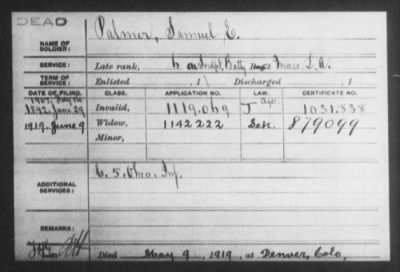 DEAD
NAME OF SOLDIER: Palmer, Samuel E.
SERVICE: Late rank, Indpt. Batty Mass. L. A.
TERM OF SERVICE: Enlisted , 1 Discharged , 1
DATE OF FILING. CLASS. APPLICATION NO. LAW. CERTIFICATE NO.
Age.
1892. June 29 Invalid, 1119.069 J 1031.838
1919. June 9 Widow, 1142222 Sen. 879099
Minor,
ADDITIONAL SERVICES: C. 5. Ohio. Inf.
REMARKS:
Died May 9, 1919, at Denver, Colo,